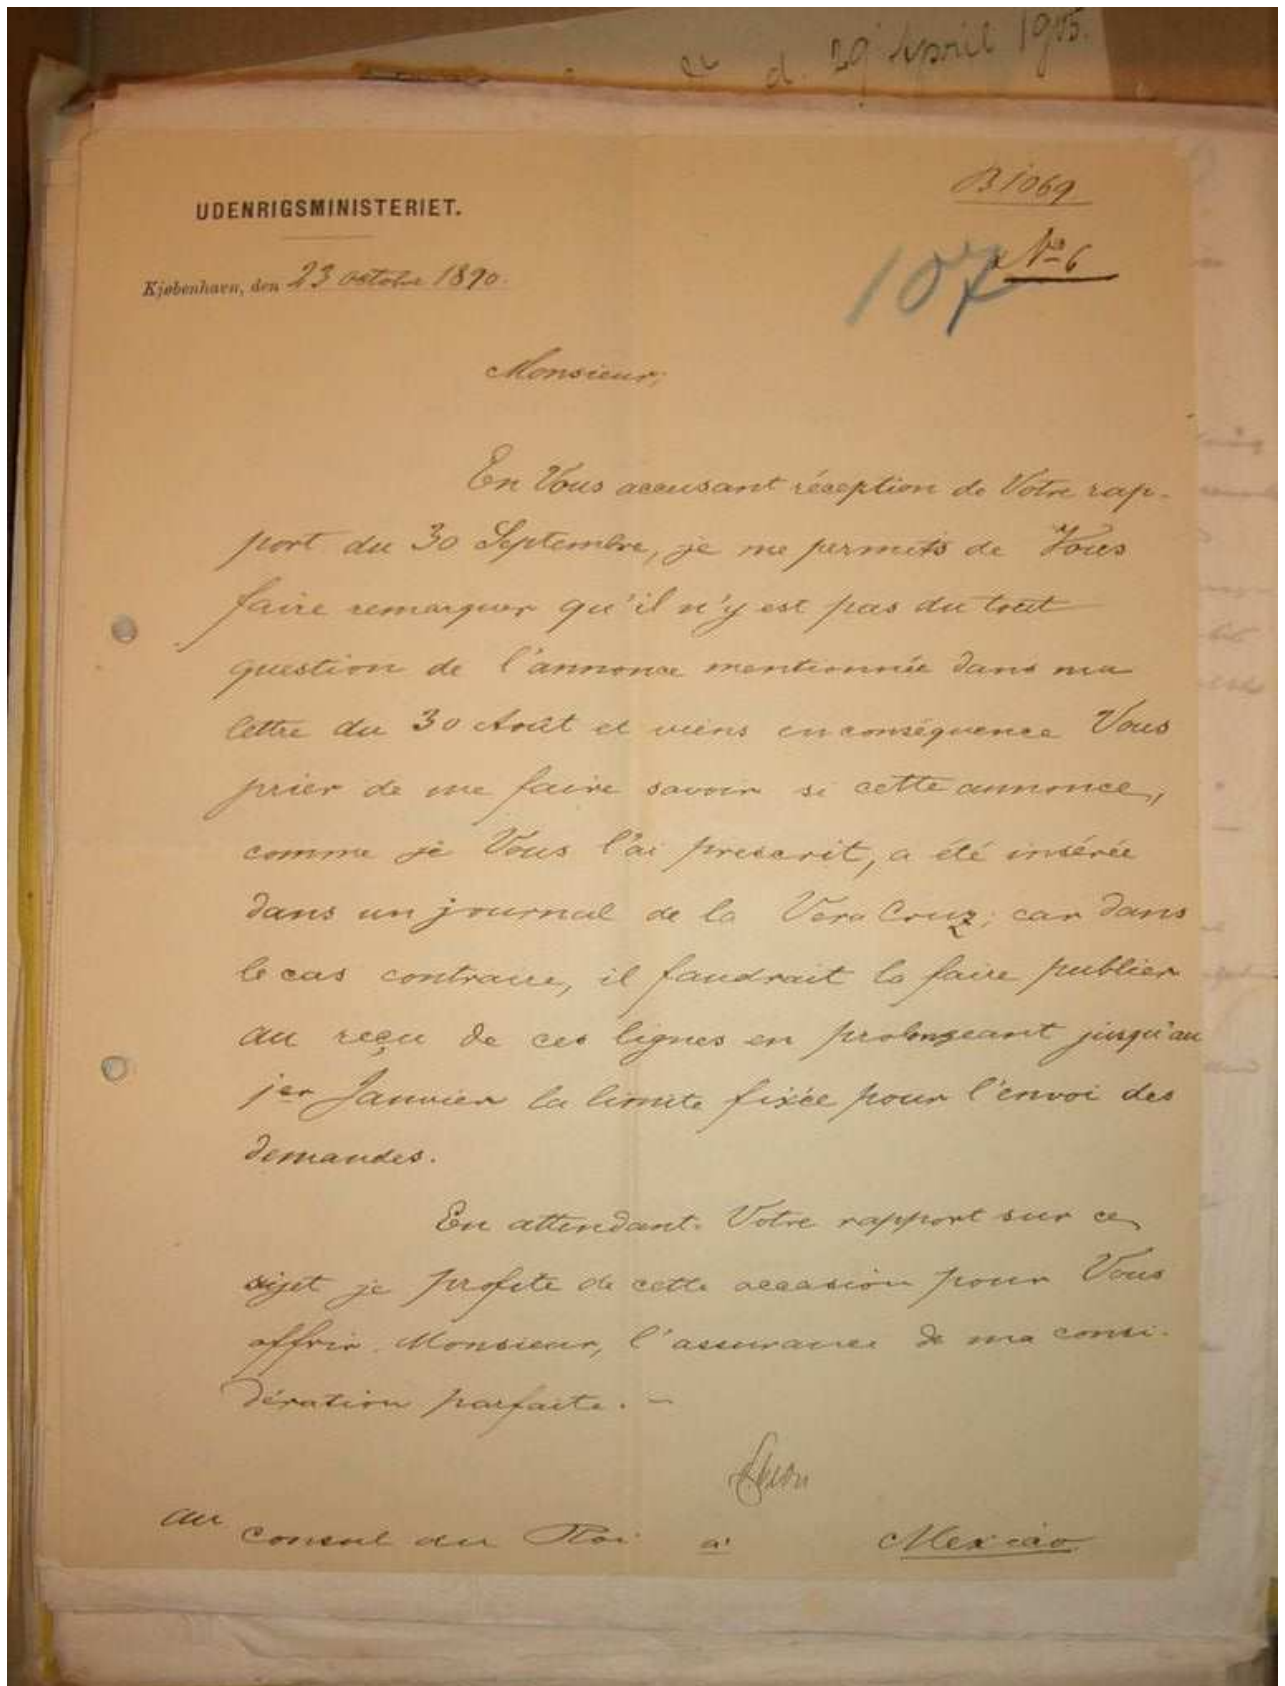 d. 29 April 1905.
B 1069
UDENRIGSMINISTERIET.
107 No 6
Kjøbenhavn, den 23 octobre 1890.
Monsieur,
En Vous accusant réception de Votre rap-
port du 30 Septembre, je me permets de Vous
faire remarquer qu'il n'y est pas du tout
question de l'annonce mentionnée dans ma
lettre du 30 Août et viens en conséquence Vous
prier de me faire savoir si cette annonce,
comme je Vous l'ai prescrit, a été insérée
dans un journal de la Vera Cruz; car dans
le cas contraire, il faudrait la faire publier
au reçu de ces lignes en prolongeant jusqu'au
1er Janvier la limite fixée pour l'envoi des
demandes.
En attendant Votre rapport sur ce
sujet je profite de cette occasion pour Vous
offrir, Monsieur, l'assurance de ma consi-
dération parfaite. –
au Consul du Roi à Mexico